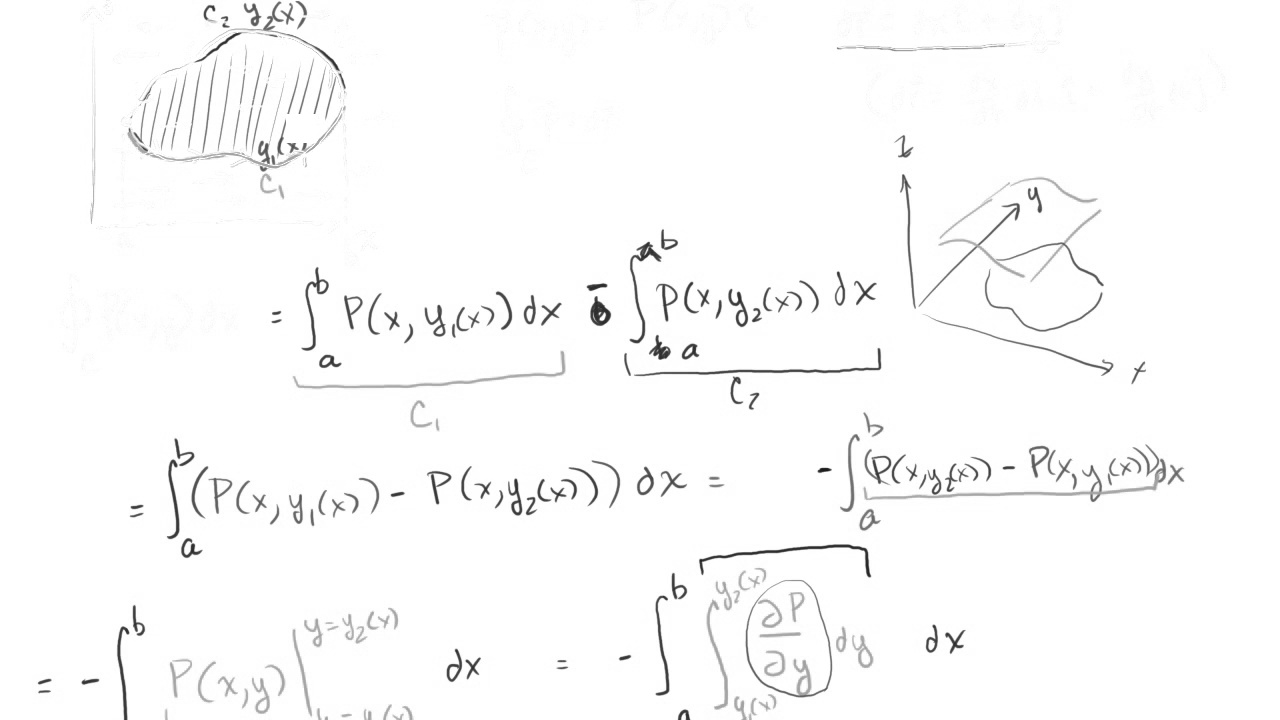 C₂ y₂(x)
y₁(x)
C₁
z
y
x
= ∫ₐᵇ P(x, y₁(x)) dx - ∫ₐᵇ P(x, y₂(x)) dx
C₁ C₂
= ∫ₐᵇ (P(x, y₁(x)) - P(x, y₂(x))) dx = - ∫ₐᵇ (P(x, y₂(x)) - P(x, y₁(x))) dx
= - ∫ᵇ P(x,y) | y=y₂(x) dx = - ∫ₐᵇ ∫ y₂(x) y₁(x) ∂P/∂y dy dx